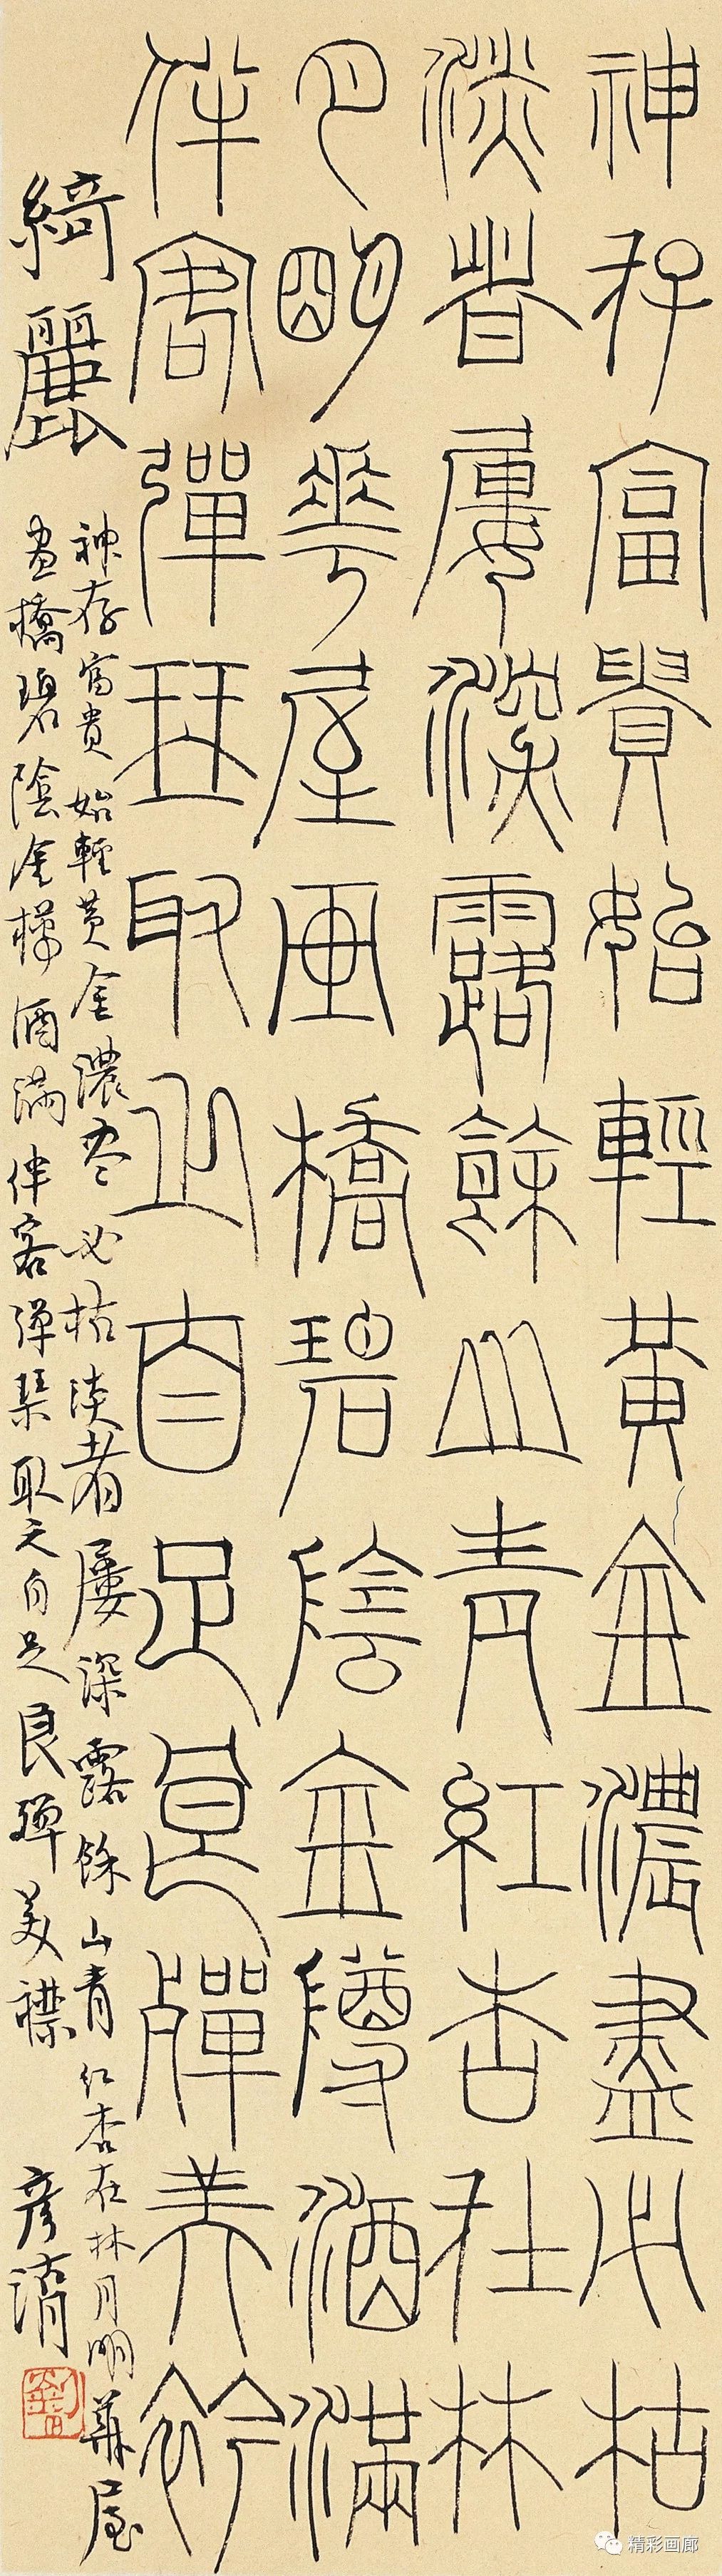 神存富貴始輕黃金濃盡必枯
淡者屢深露餘山青紅杏在林
月明華屋画橋碧陰金樽酒滿
伴客彈琴取之自足良殫美襟
綺麗
神存富貴始輕黃金濃尽必枯淡者屢深露餘山青红杏在林月明華屋
畫橋碧陰金樽酒滿伴客彈琴取之自足良殫美襟 彦
精彩画廊